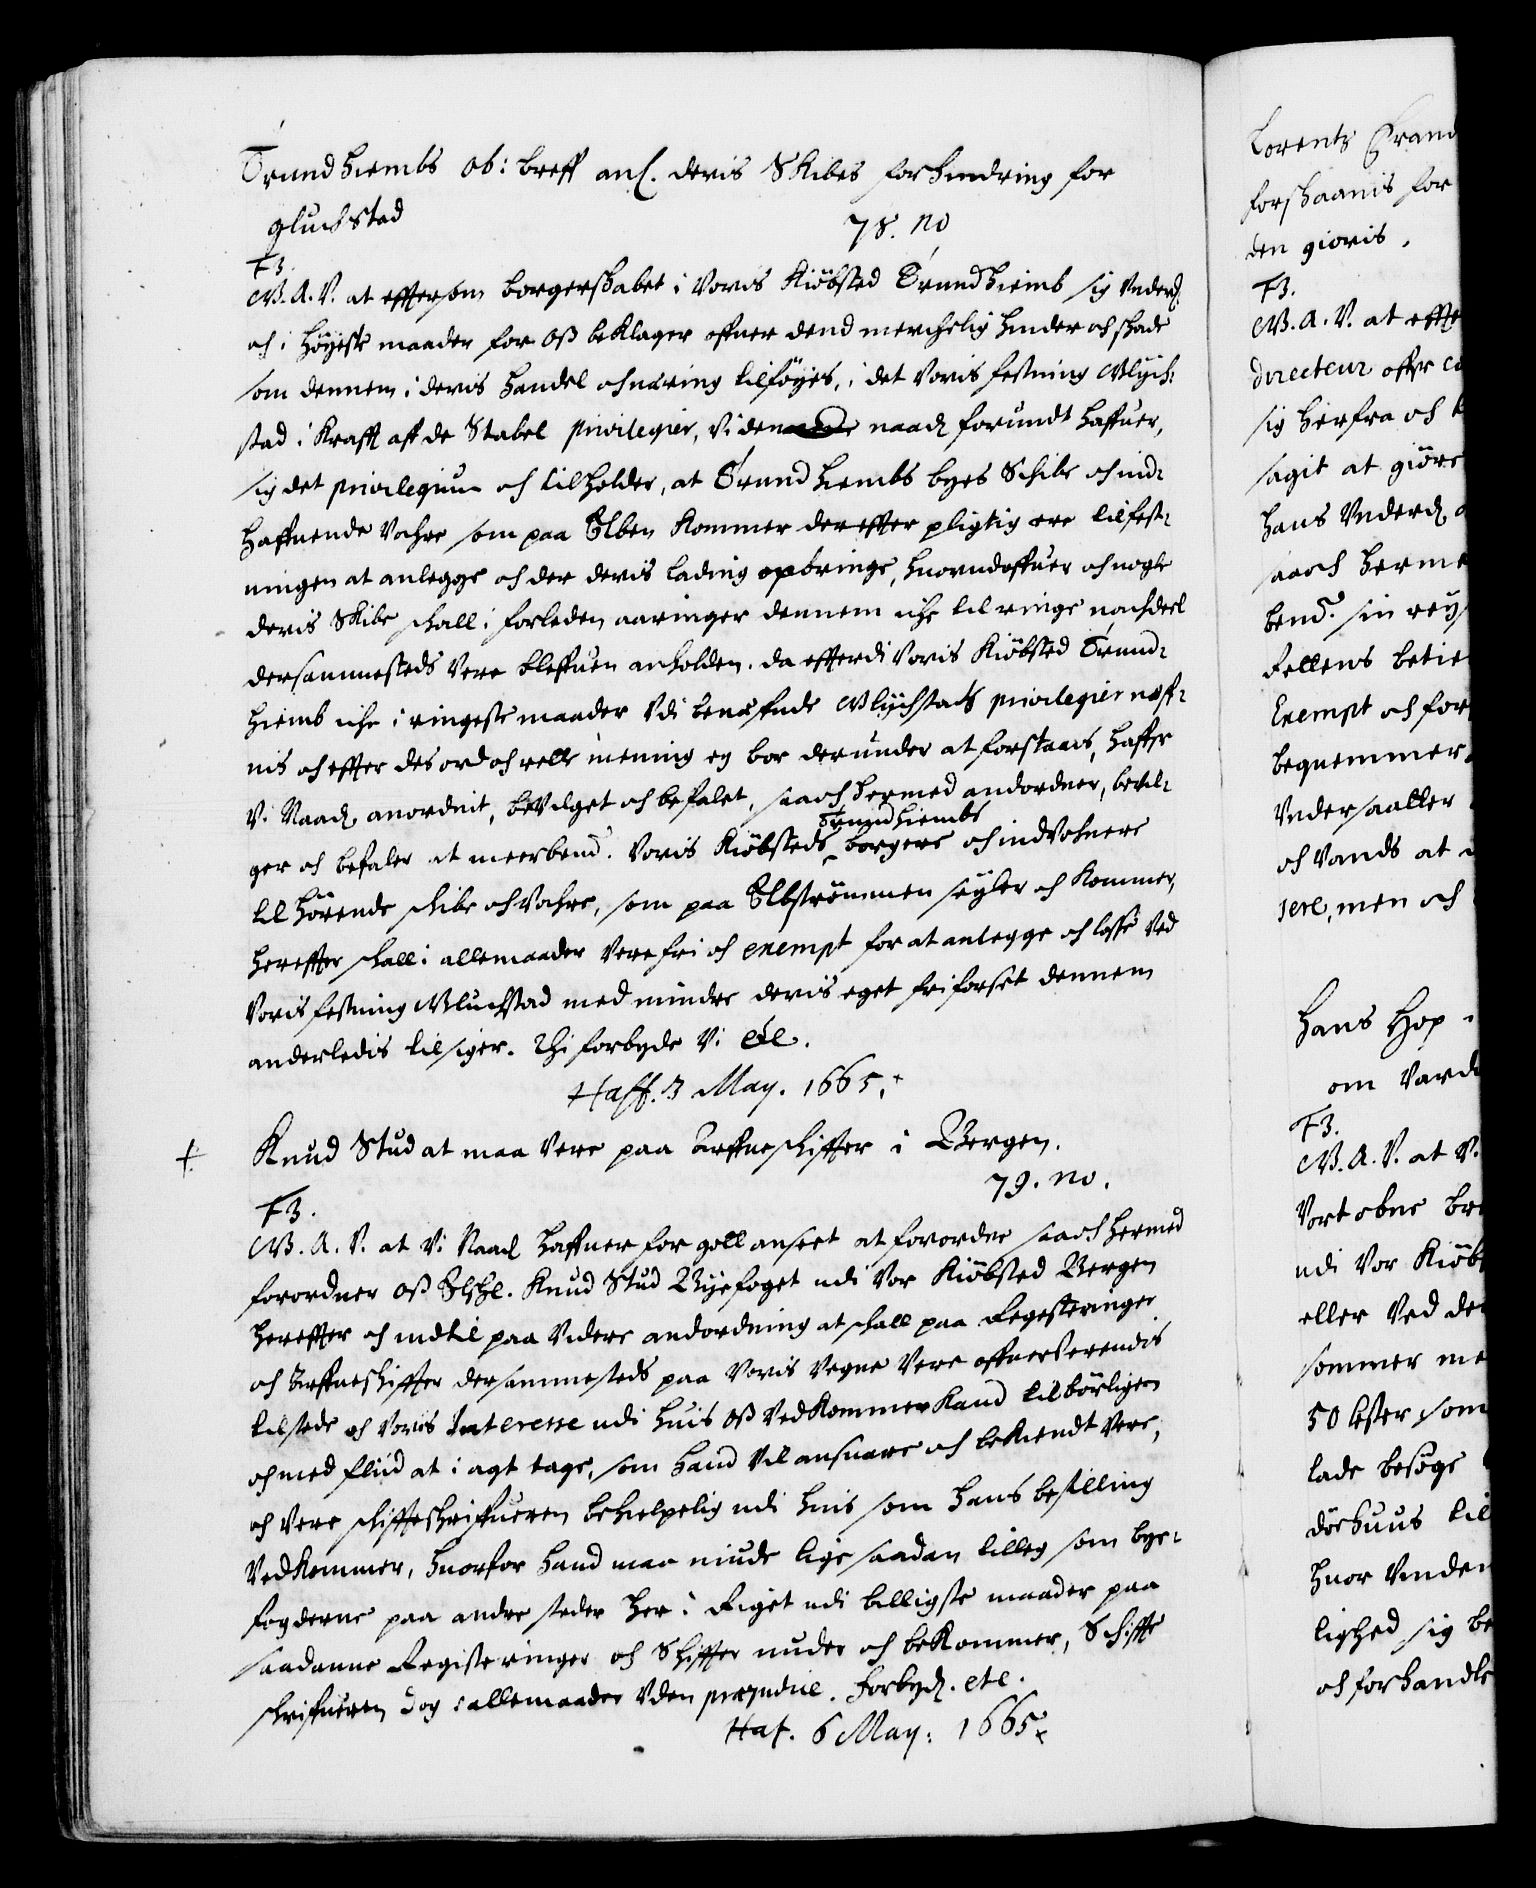 Trundhiembs ob: breff anl. deris Skibes forhindring for
Gluchstad
78. no
F3.
G. A. V. at eftersom borgerskabet i Voris Kiöbsted Trundhiemb sig Underd.
och i höyeste maader for Oß beklager offuer dend merchelig hinder och skade
som dennem i deris handel och næring tilföyes, i det Voris festning Glych-
stad i Krafft aff de Stabel privilegier, Vi den naad. forundt haffuer,
sig det privilegium och tilholder, at Trundhiembs byes Schibe och ind-
haffuende Vahre som paa Elben kommer der effter pligtig ere til fest-
ningen at anlegge och der deris lading opbringe, huorudoffuer och nogle
deris Skibe schall i forleden aaringer dennem iche til ringe nachdeel
dersammesteds Vere bleffuen anholden. da efferdi Voris Kiöbsted Trund-
hiemb iche i ringeste maader Udi benefnde Glychstads privilegier neff-
nis och effter des ord och rette mening ey bor derunder at forstaaes, haffr
Vi Naad. anordnit, bevilget och befalet, saa och hermed andordner, bevil-
ger och befaler at meerbend. Voris Kiöbsteds Trundhiembs borgere och indvohnere
tilhörende schibe och Vahre, som paa Elbströmmen seyler och kommer,
hereffter schall i allemaader Vere fri och exempt for at anlegge och losse Ved
Voris festning Gluchstad med mindre deris eget friforset dennem
anderledis tilsiger. Thi forbyde Vi etc.
Haff. 3 May. 1665.
+ Knud Stud at maa Vere paa Arffueschiffter i Bergen.
79. no.
F3.
G. A. V. at Vi Naad haffuer for gott anseet at forordne saa och hermed
forordner Oß Elschl. Knud Stud Byefoget udi Vor Kiöbsted Bergen
hereffter och indtil paa Videre andordning at schall paa Registeringer
och Arffueschiffter dersammesteds paa Voris Vegne Vere offuerverendis
tilstede och Voris Interesse udi huis Oß Vedkommer Kand tilbörligen
och med fliid at i agt tage, som hand Vil ansuare och bekiendt Vere,
och Vere schiffteschriffueren behielpelig udi huis som hans bestilling
Vedkommer, huorfor hand maa niude lige saadan tilleg som bye-
fogderne paa andre steder her i Riget udi billigste maader paa
saadanne Registeringer och Schiffter nuder och bekommer, Schiffte
schrifueren dog i allemaader Uden præjudice. Forbyd. etc.
Haf. 6 May: 1665.
Lorents
forskaanis for
den gioris.
F3.
G. A. V. at effte
directeur offr
sig herfra och
sagit at giöre
hans Underd.
saa och herme
bend. sin rey
fellens betie
Exempt och for
beqvemmer
Undersaatter
och Vands at
cere, men och
Hans Hop
om Vard
F3.
G. A. V. at V.
Vort obne br
udi Vor Kiöb
eller Ved de
sommer me
50 lester som
lade besöge
döchuus til
huor Vinden
lighed sig be
och forhandle